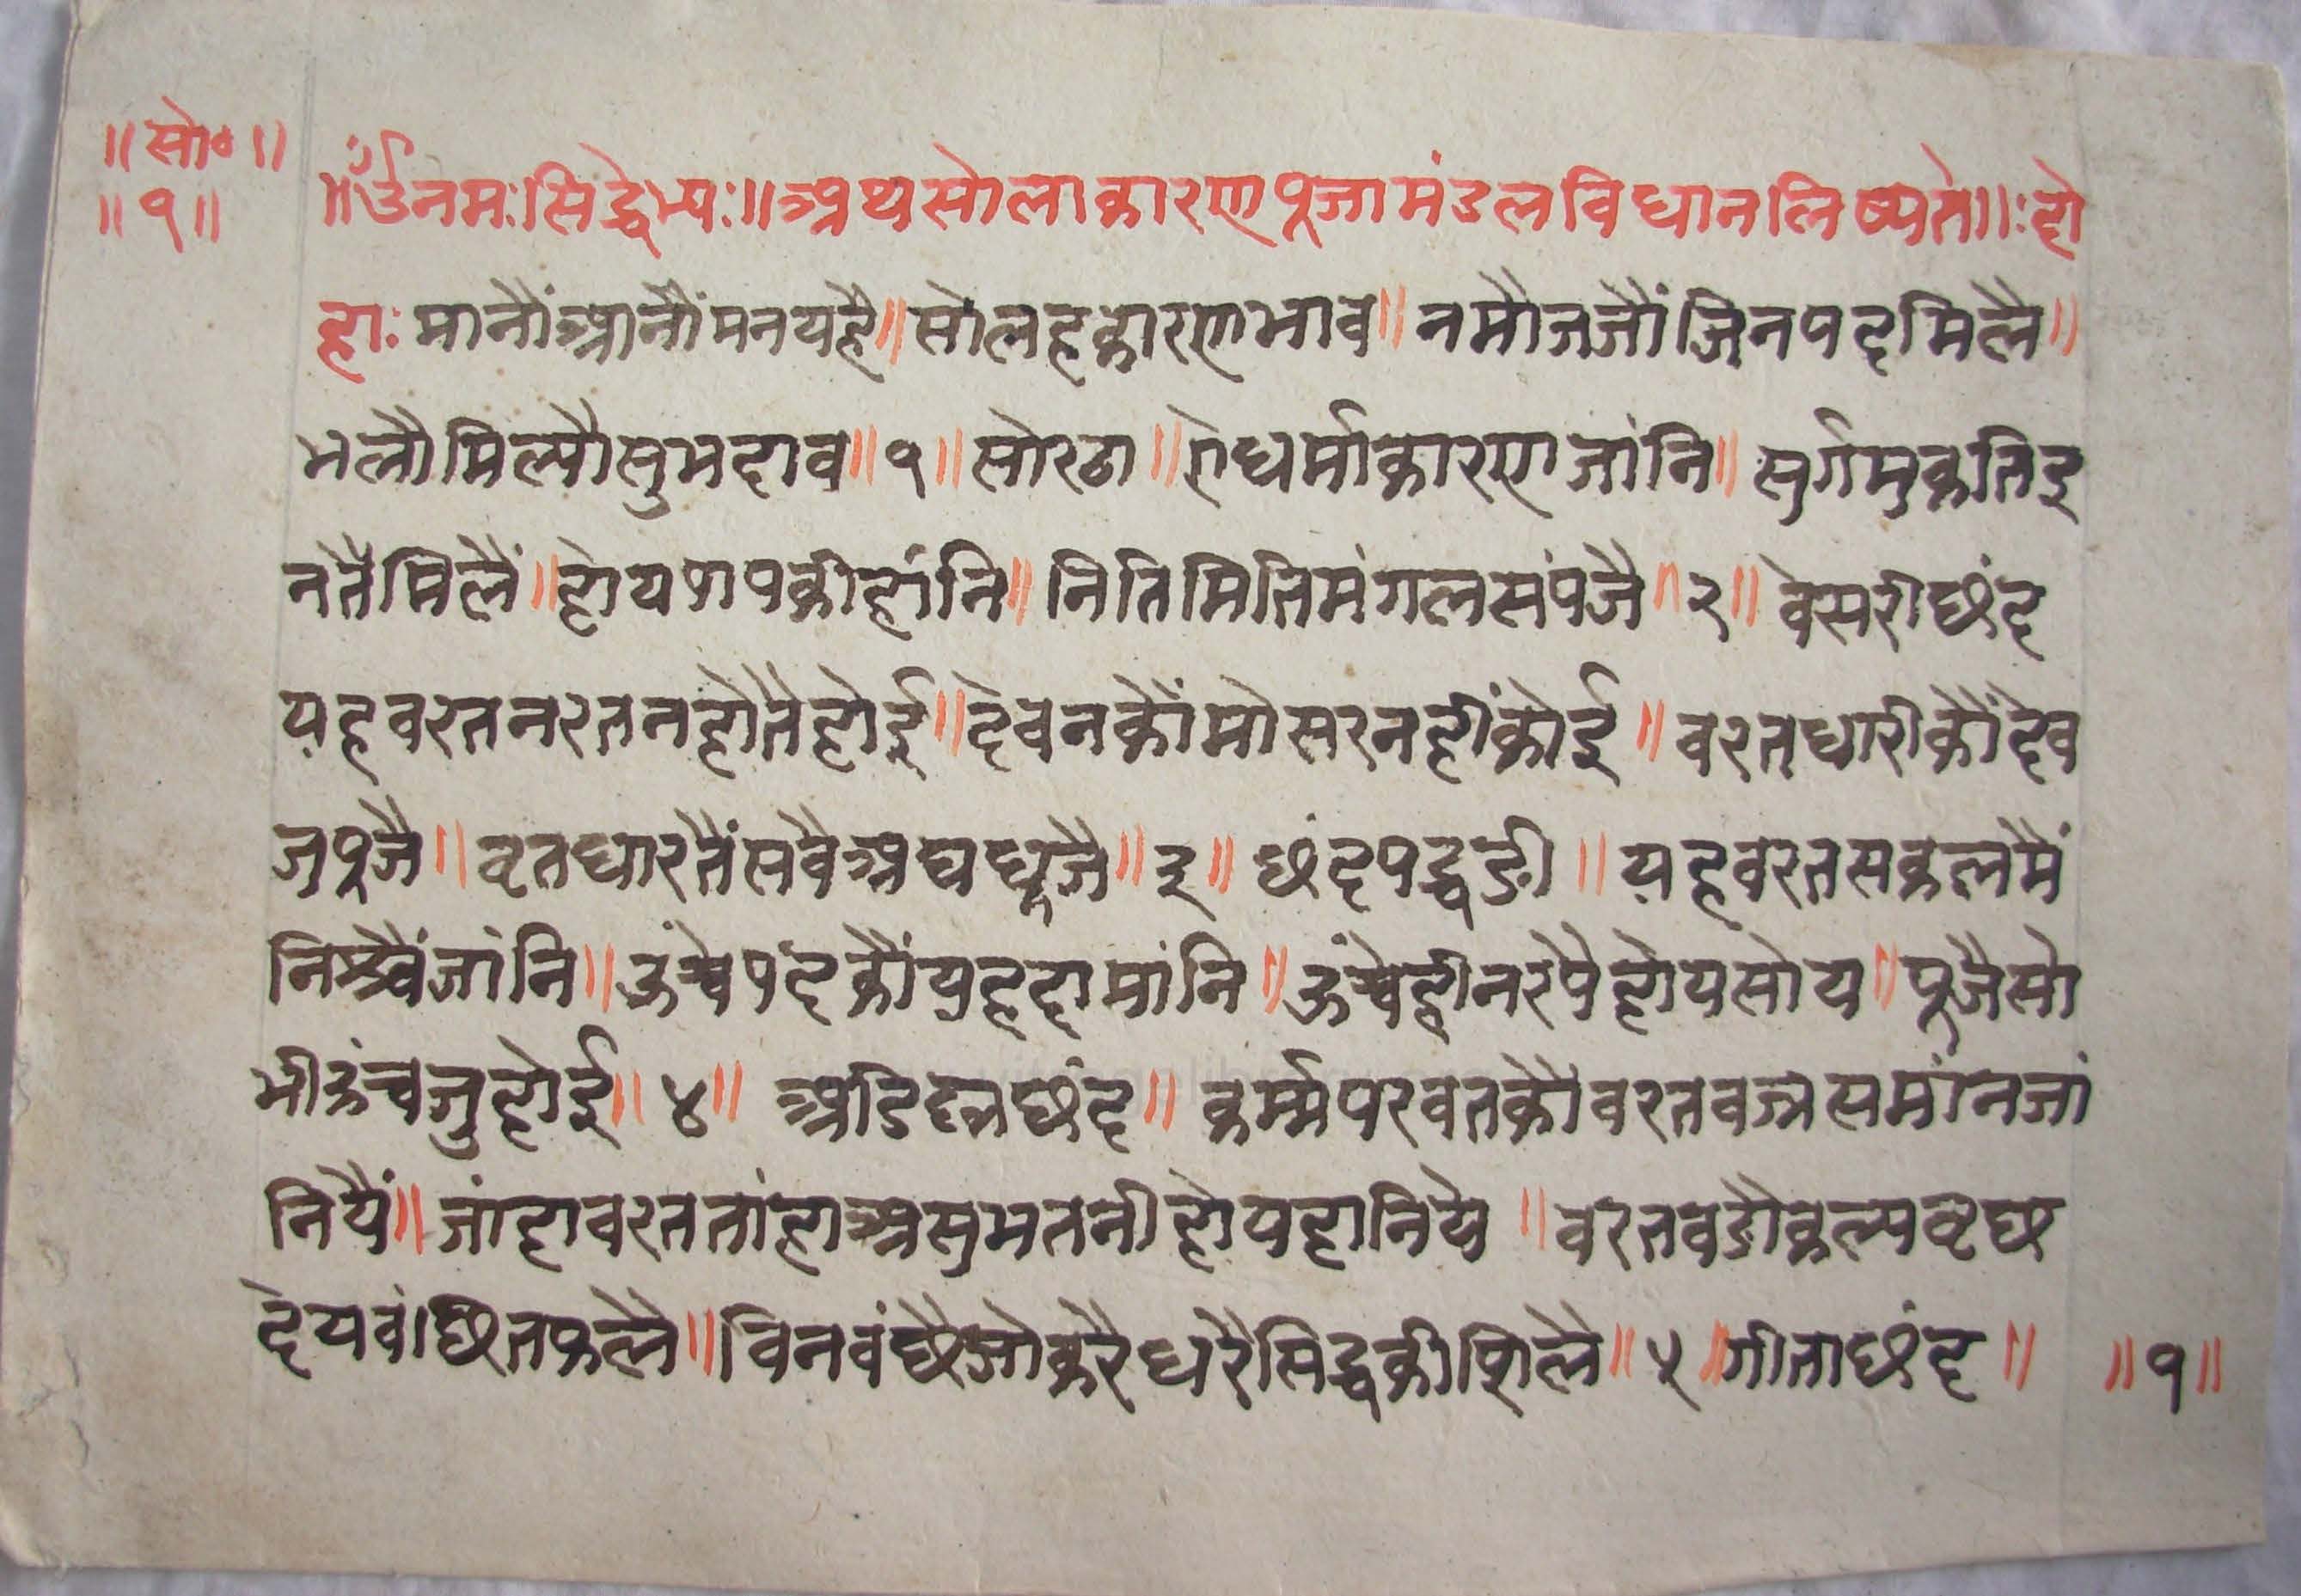 ॥सो०॥
॥१॥
॥ॐनमःसिद्धेभ्यः॥अथसोलाकारणपूजामंडलविधानलिष्यते॥ःदो
हाः मानौंआनौंमनयहै॥सोलहकारणभाव॥नमौजजौंजिनपदमिलै॥
भलौमिल्यौसुभदाव॥१॥सोरठा॥ऐधर्माकारणजांनि॥सुर्गमुकतिइ
नतैमिलैं॥होयपापकीहांनि॥नितिमितिमंगलसंपजै॥२॥ वेसरीछंद
यहवरतनरतनहोतैहोई॥देवनकौंमोसरनहींकोई॥वरतधारीकौंदेव
जुपूजै॥वृतधारतैंसवैअघधूजै॥३॥ छंदपद्धडी॥यहवरतसकलमैं
निश्चैंजांनि॥ऊंचेपदकौंयहदामांनि॥ऊंचेहीनरपैहोयसोय॥पूजैसो
भीऊंचजुहोई॥४॥ अडिल्लछंद॥कर्म्मपरवतकौवरतवज्रसमांनजां
नियैं॥जांहावरततांहाअसुभतनीहोयहानिये॥वरतवडौकल्पवृछ
देयवांछितफलै॥विनवंछैजोकरैधरैसिद्धकीशिलै॥५॥गीताछंद॥ ॥१॥